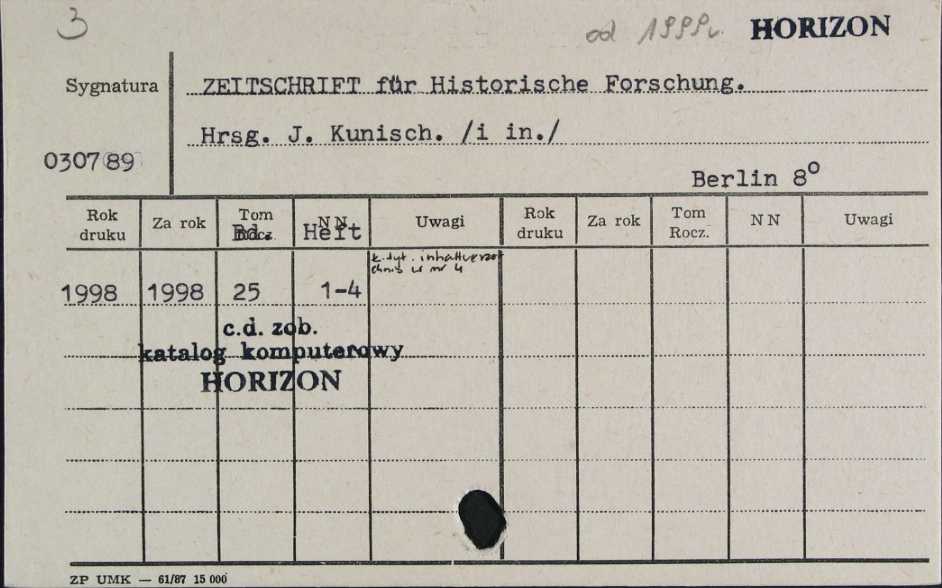 3 od 1999r. HORIZON
Sygnatura
ZEITSCHRIFT für Historische Forschung.
Hrsg. J. Kunisch. /i in./
030789
Berlin 8º
Rok druku Za rok Tom Rocz. Bd. NN Heft Uwagi Rok druku Za rok Tom Rocz. NN Uwagi
k. tyt. inhaltverzei
chnis w nr 4
1998 1998 25 1-4
c.d. zob.
katalog komputerowy
HORIZON
ZP UMK — 61/87 15 000